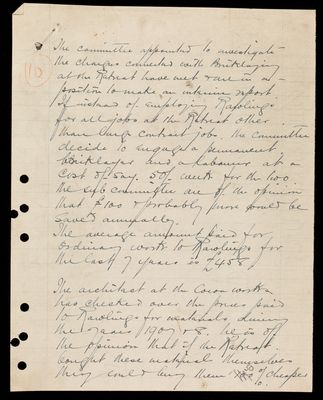 The committee appointed to investigate
the charges connected with Bricklaying
at the Retreat have met & are in a
position to make an interim report
If instead of employing Rawlings
for all jobs at the Retreat other
than large contract jobs, the committee
decide to engage a permanent
bricklayer and a labourer at a
cost of say 50/- week for the two
the sub committee are of the opinion
that £100 & probably more could be
saved annually.
The average amount paid for
ordinary work to Rawlings for
the last 7 years is £458.
The architect at the Cocoa works
has checked over the prices paid
to Rawlings for materials during
the years 1907 & 8. he is of
the opinion that if the Retreat
bought these material themselves
they could buy them % cheaper